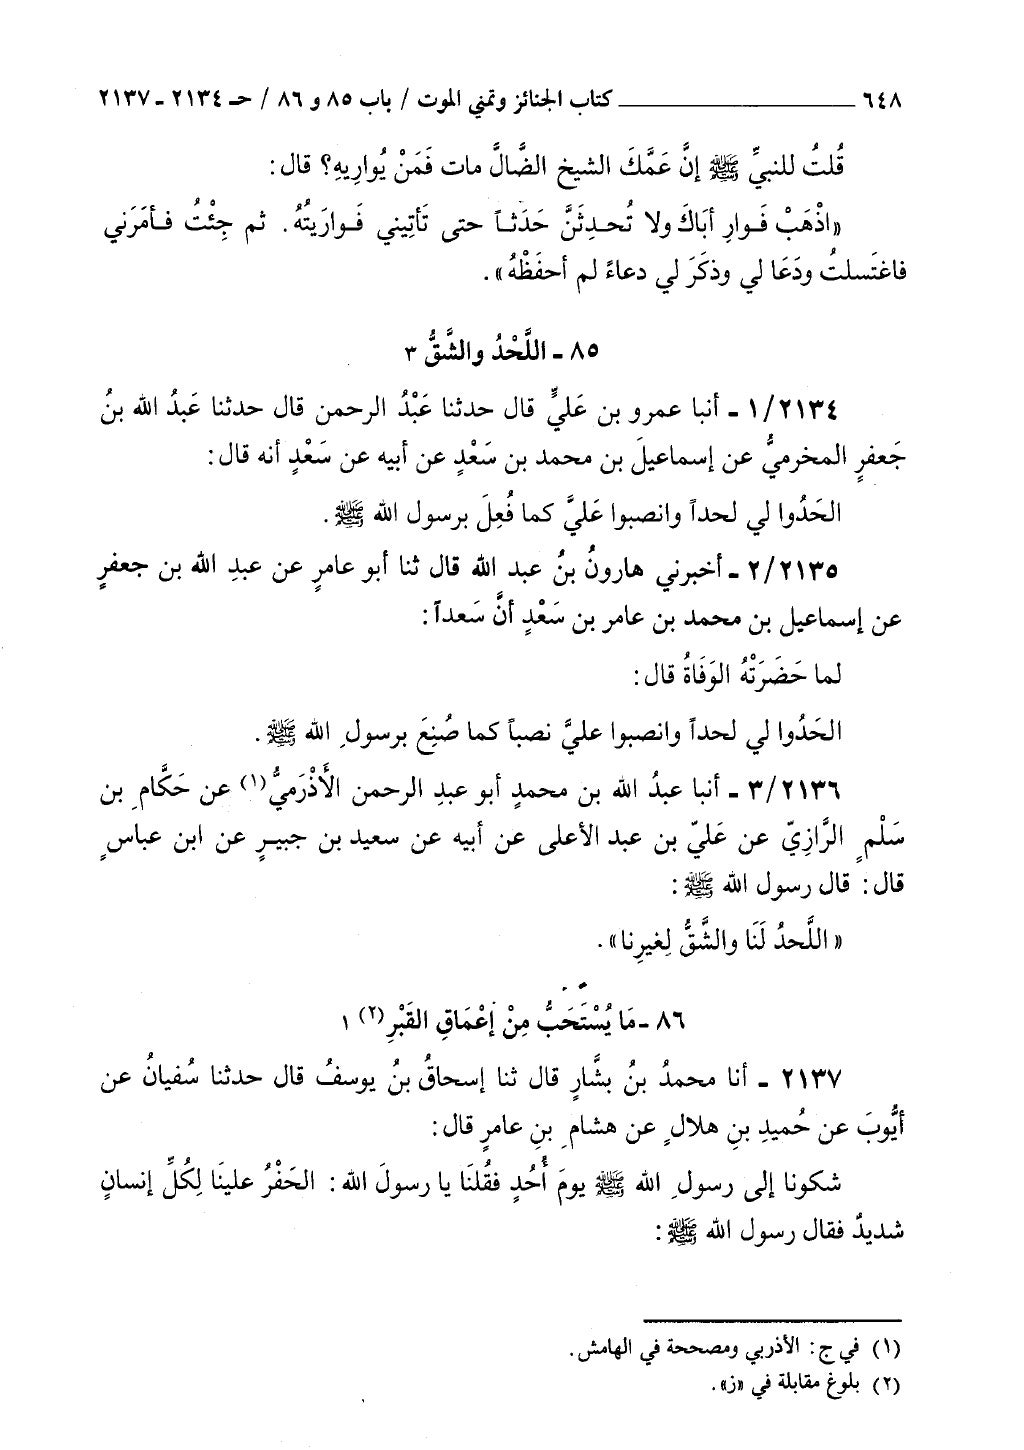 ٦٤٨ ــــــــــــ كتاب الجنائز وتمني الموت / باب ٨٥ و ٨٦ / حـ ٢١٣٤ ـ ٢١٣٧
قُلتُ للنبيِّ ﷺ إنَّ عَمَّكَ الشيخ الضَّالَّ مات فَمَنْ يُوارِيهِ؟ قال:
«اذْهَبْ فَوارِ أباكَ ولا تُحدِثَنَّ حَدَثاً حتى تَأتِيني فَوارَيتُهُ. ثم جِئْتُ فأمَرَني
فاغتَسلتُ ودَعَا لي وذكَرَ لي دعاءً لم أحفَظْهُ».
٨٥ ـ اللَّحْدُ والشَّقُّ ٣
١/٢١٣٤ ـ أنبا عمرو بن عَليٍّ قال حدثنا عَبْدُ الرحمن قال حدثنا عَبدُ الله بنُ
جَعفرٍ المخرميُّ عن إسماعيلَ بن محمد بن سَعْدٍ عن أبيه عن سَعْدٍ أنه قال:
الحَدُوا لي لحداً وانصبوا عَليَّ كما فُعِلَ برسول الله ﷺ.
٢/٢١٣٥ ـ أخبرني هارونُ بنُ عبد الله قال ثنا أبو عامرٍ عن عبدِ الله بن جعفرٍ
عن إسماعيل بن محمد بن عامر بن سَعْدٍ أنَّ سَعداً:
لما حَضَرَتْهُ الوَفَاةُ قال:
الحَدُوا لي لحداً وانصبوا عليَّ نصباً كما صُنِعَ برسولِ الله ﷺ.
٣/٢١٣٦ ـ أنبا عبدُ الله بن محمدٍ أبو عبدِ الرحمن الأَذْرَميُّ(١) عن حَكَّامِ بن
سَلْمٍ الرَّازِيّ عن عَليّ بن عبد الأعلى عن أبيه عن سعيد بن جبيرٍ عن ابن عباسٍ
قال: قال رسول الله ﷺ:
«اللَّحدُ لَنَا والشَّقُّ لِغيرِنا».
٨٦ ـ مَا يُسْتَحَبُّ مِنْ إعْمَاقِ القَبْرِ(٢) ١
٢١٣٧ ـ أنا محمدُ بنُ بشَّارٍ قال ثنا إسحاقُ بنُ يوسفُ قال حدثنا سُفيانُ عن
أيُّوبَ عن حُميدِ بنِ هلالٍ عن هشامِ بنِ عامرٍ قال:
شكونا إلى رسولِ الله ﷺ يومَ أُحُدٍ فقُلنَا يا رسولَ الله: الحَفْرُ علينَا لِكُلِّ إنسانٍ
شديدٌ فقال رسول الله ﷺ:
(١) في ج: الأذربي ومصححة في الهامش.
(٢) بلوغ مقابلة في «ز».